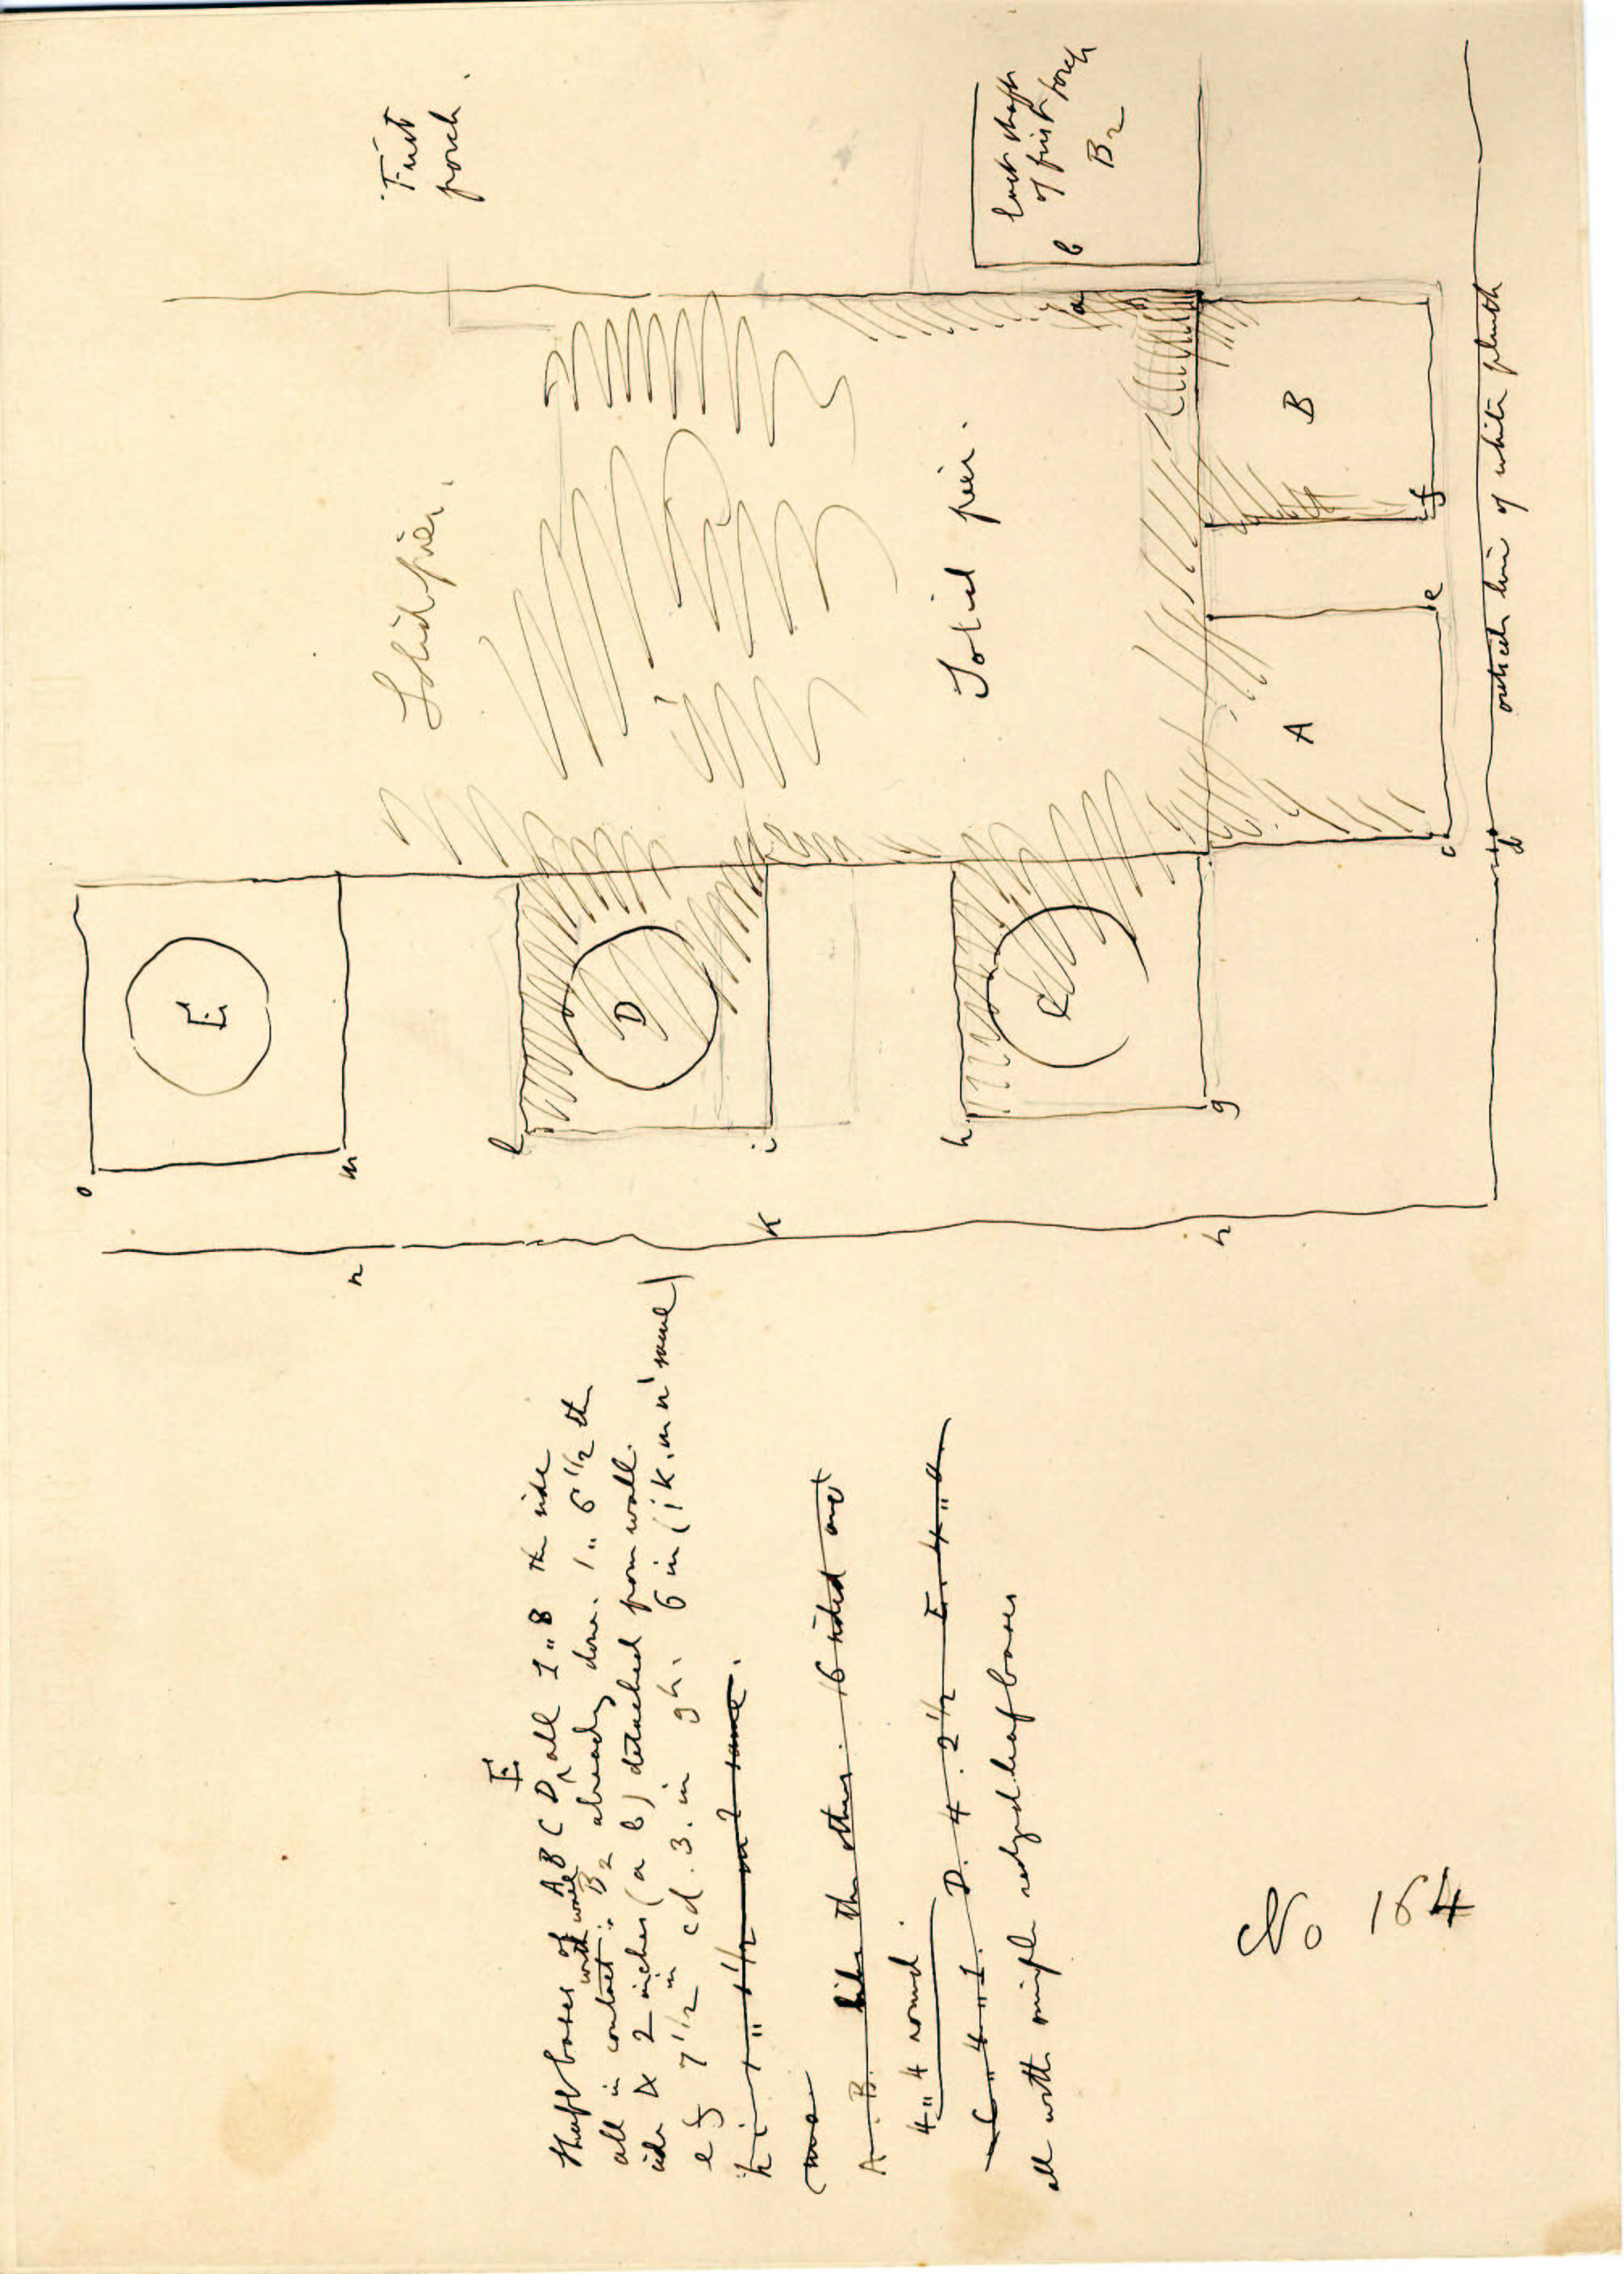 First
porch.
last shaft
of first porch
B2
b
a
Solid pier.
Solid pier.
E
D
C
A
B
o
m
n
l
i
k
h
g
h
c
d
e
f
outside line of white plinth
E
Shaft bases of A B C D ^ all 1 „ 8 the side
all in contact with wall: B2 already done. 1 „ 6 1/2 the
side is 2 inches (a b) detached from wall.
e f 7 1/2 in cd. 3. in gh. 6 in (ik. m n' same)
h i 1 „ 1 1/2 same.
A B. like the other. 16 sided and
4 „ 4 round.
C „ 4 „ 1. D. 4. 2 1/2 E. 4 „ 0
all with single leaf bases
No 164